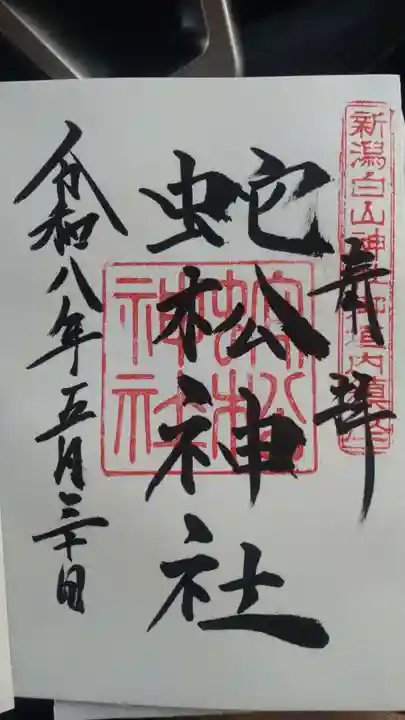 奉拝
新潟白山神社境内鎮座
蛇松神社
蛇松神社
令和八年五月三十日